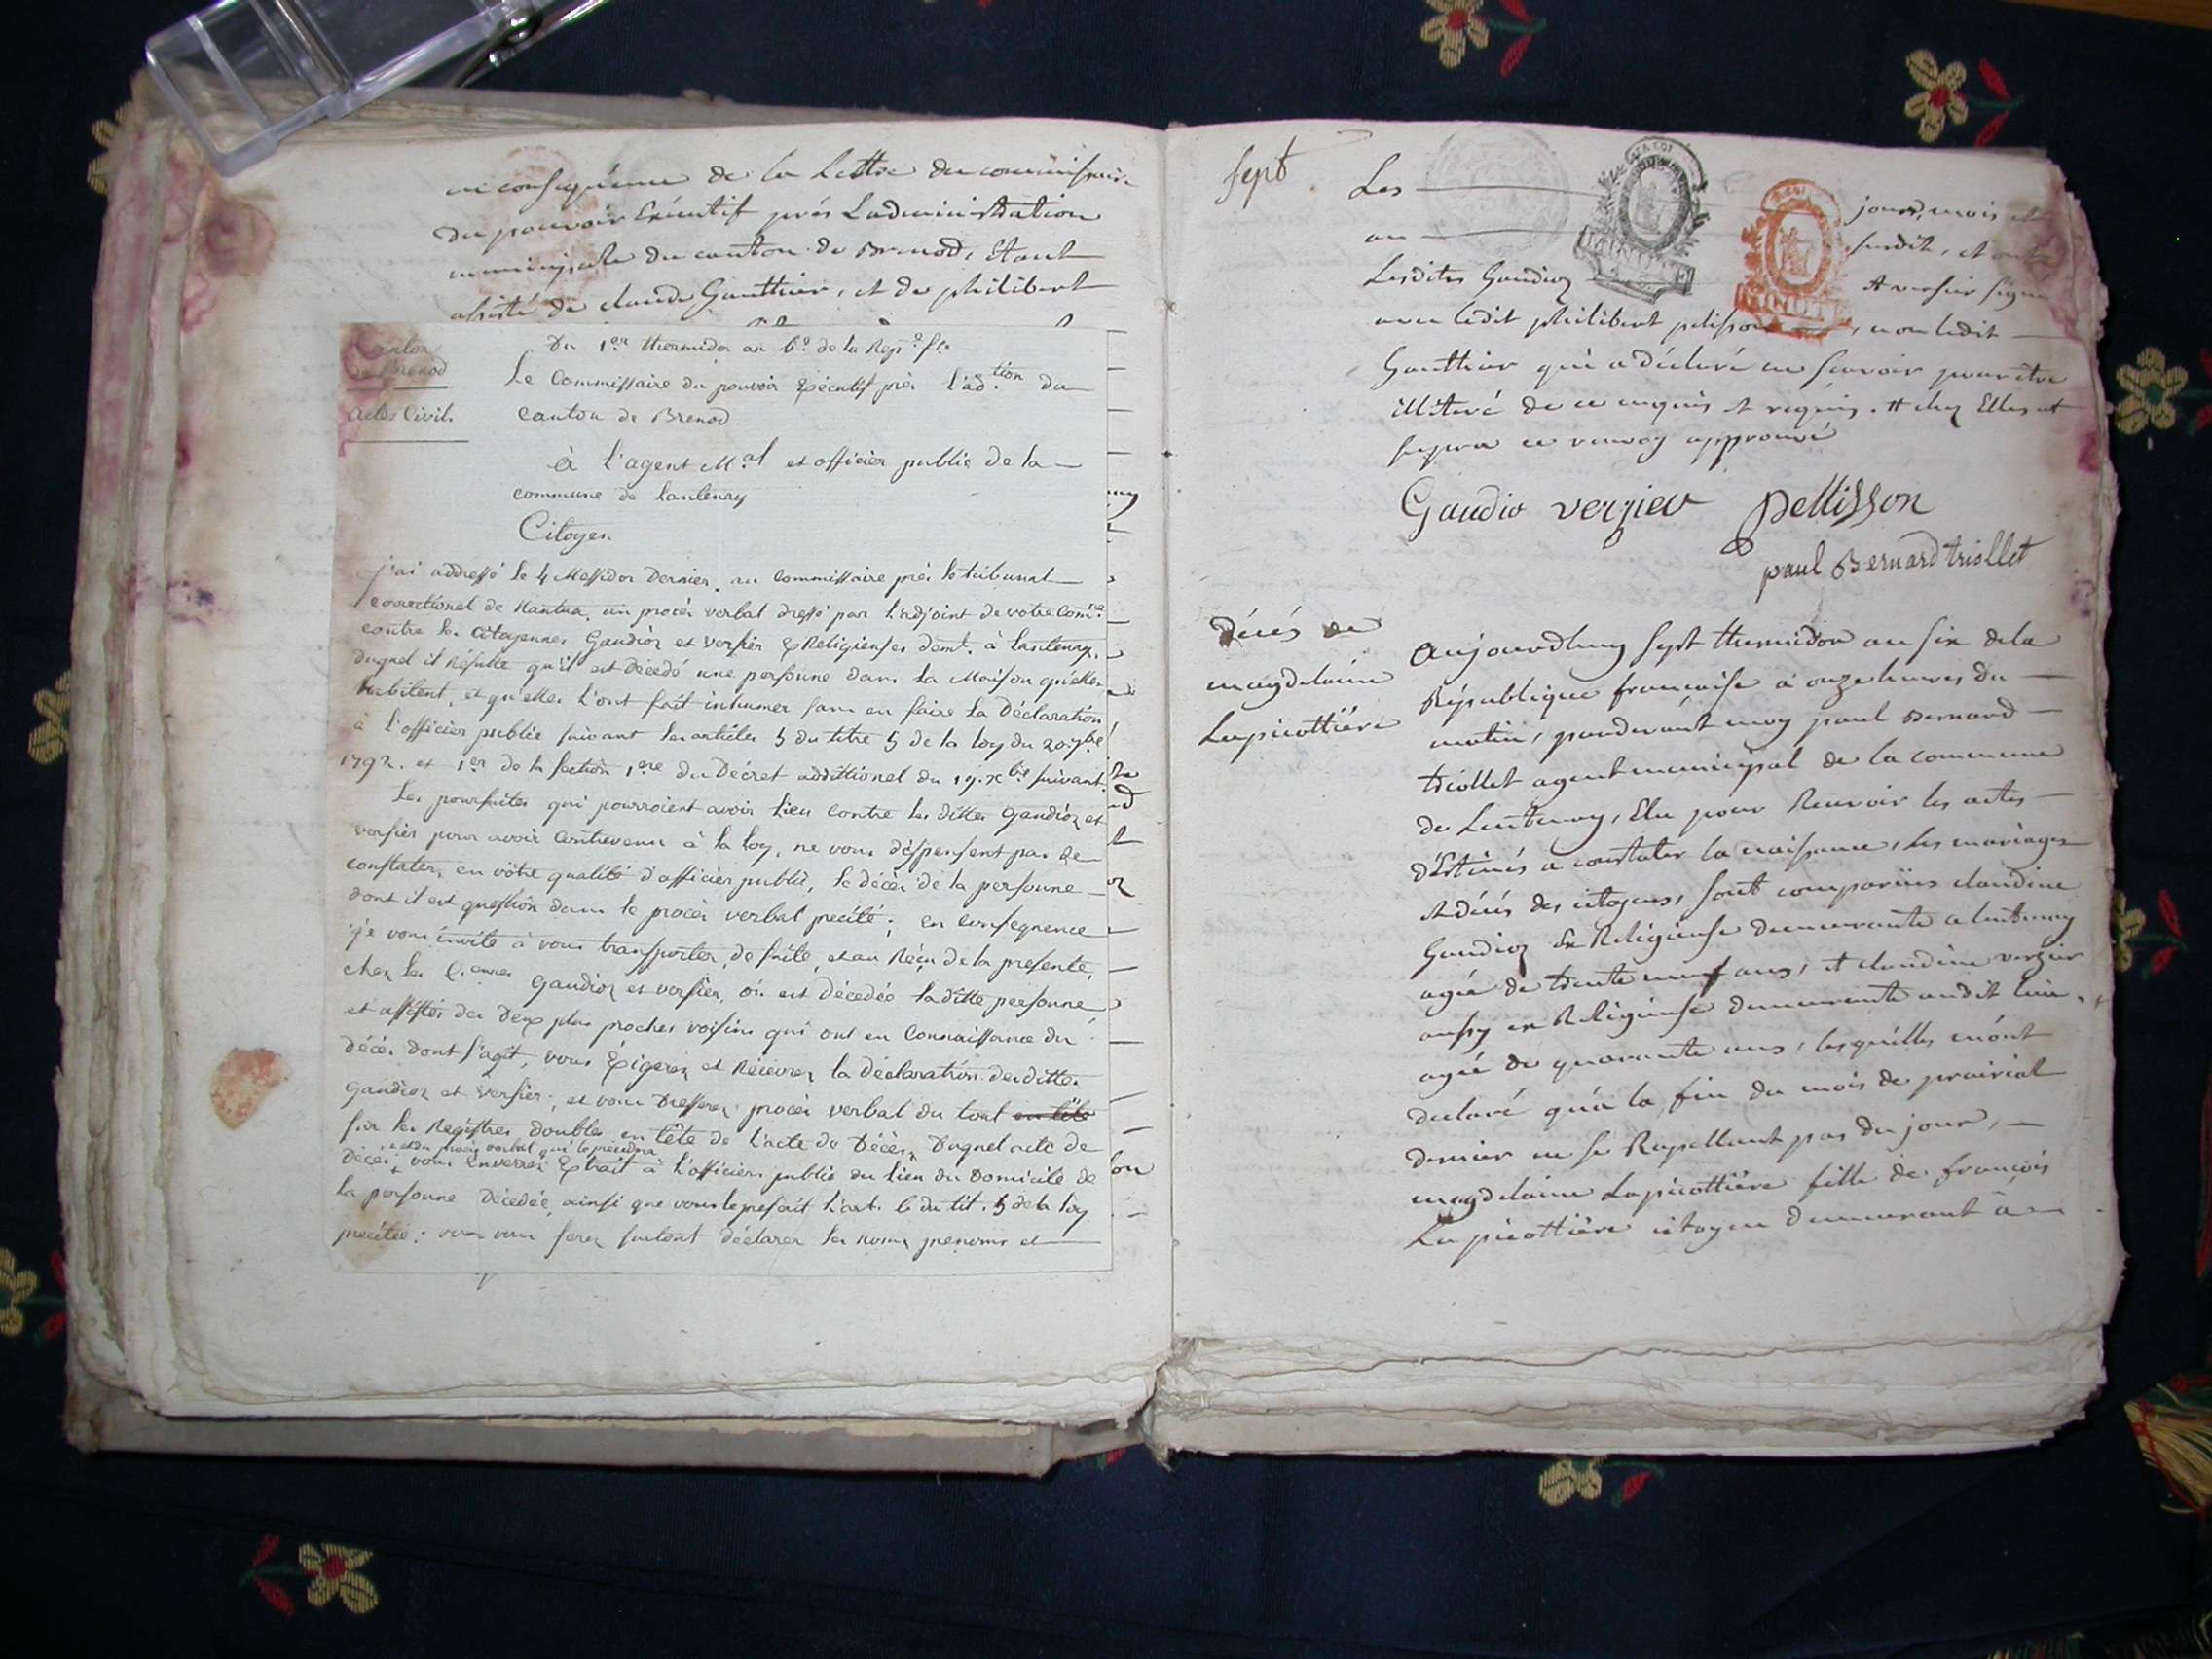 en consequence de la Lettre du commissaire
du pouvoir Exécutif prés Ladministration
municipale du canton de Brenod, Etant
assisté de claude Gauthier, et de philibert
canton
de Brenod
actes Civils
Du 1er thermidor an 6e de la Rep.e fse
Le Commissaire du pouvoir Exécutif près l'ad.tion du
canton de Brenod
à l'agent M.al et officier public de la
commune de Lantenay
Citoyen
j'ai addressé le 4 Messidor Dernier, au Commissaire près le tribunal
correctionel de Nantua, un procès verbal dressé par l'adjoint de votre Com.ne
contre les Citoyennes Gaudioz et versier Ex Religieuses demt. à Lantenay,
duquel il Résulte qu'il est Décédé une personne dans la Maison qu'elles
habitent, et qu'elles l'ont fait inhumer sans en faire la Déclaration
à l'officier public suivant les articles 5 du titre 5 de la loy du 20 7bre
1792. et 1er de la section 1ere du Décret additionel du 19. Xbre suivant.
Les poursuites qui pourroient avoir lieu contre les dittes Gaudioz et
versier pour avoir Contrevenu à la loy, ne vous dispensent pas de
constater, en vôtre qualité d'officier public, le décès de la personne
dont il est question dans le procès verbal précité; en consequence
je vous invite à vous transporter, de suite, et au Reçu de la presente,
chez les C.ennes Gaudioz et versier, où est décedée laditte personne
et assistés des Deux plus proches voisins qui ont eu Connaissance du
décès dont s'agit, vous Exigerez et Recevrez la déclaration desdittes
Gaudioz et versier; et vous Dresserez procès verbal du tout en tête
sur les Registres doubles en tête de l'acte de Décès, Duquel acte de
et du procès verbal qui le précédera
Décès, vous Enverrez Extrait à l'officier public du lieu du Domicile de
la personne Décedée, ainsi que vous le prescrit l'art. 6 du tit. 5 de la loy
précitée: vous vous ferez surtout déclarer les noms prenoms et
sept
Les jours, mois et
an susdit, et ont
Lesdites Gaudioz et versier signé
avec ledit philibert pelisson, non ledit
Gauthier qui a déclaré ne scavoir pour être
illiteré de ce enquis et requis. # chez Elles ut
supra ce renvoy approuvé
Gaudio verzier pellisson
paul Bernard triollet
Décés de
magdelaine
Lapicottiére
Aujourdhuy sept thermidor an six de la
République francaise à onze heures du
matin, pardevant moy paul Bernard
triollet agent municipal de la commune
de Lentenay, Elu pour Recevoir les actes
déstinés a constater la naissance, les mariages
et décés des citoyens, sont comparües claudine
Gaudioz Ex Religieuse demeurante a lentenay
agée de trente neuf ans, et claudine verzier
aussy ex Religieuse demeurante audit lieu,
agée de quarante ans, lesquelles m'ont
declaré qu'a la fin du mois de prairial
dernier ne se Rapellant pas du jour,
magdelaine Lapicottiére fille de françois
Lapicottiére citoyen demeurant à